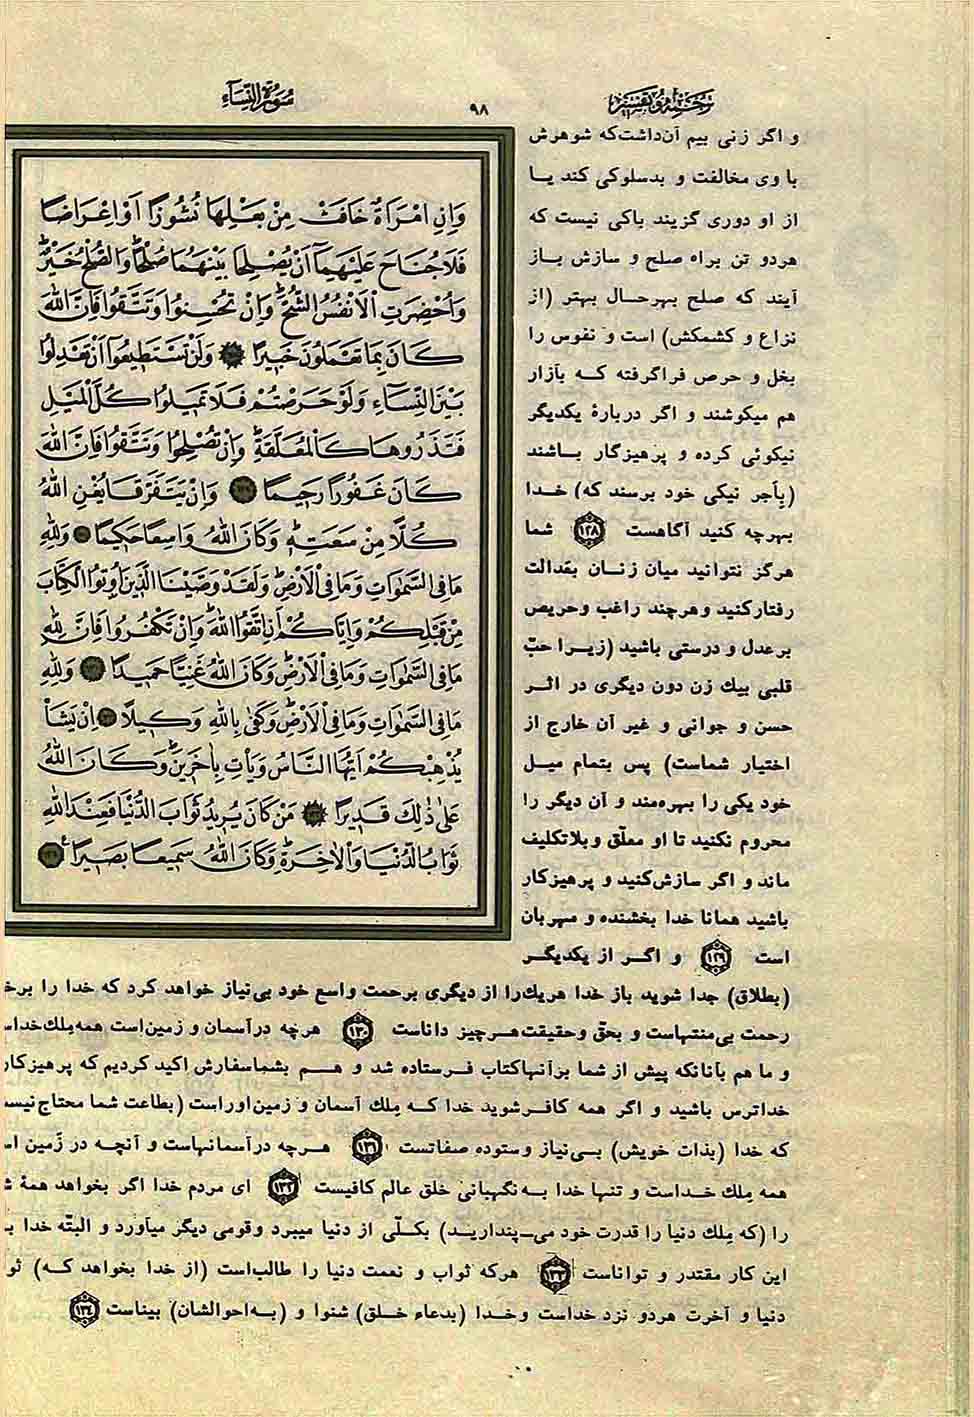 ترجمه و تفسیر
۹۸
سورة النساء
و اگر زنی بیم آن‌داشت‌که شوهرش
با وی مخالفت و بدسلوکی کند یـا
از او دوری گزیند باکی نیست که
هردو تن براه صلح و سازش بـاز
آیند که صلح بهرحـال بهتر (از
نزاع و کشمکش) است و نفوس را
بخل و حرص فراگرفته کـه بآزار
هم میکوشند و اگر دربارهٔ یکدیگر
نیکوئی کرده و پرهیزگار بـاشند
(بِأجر نیکی خود برسند که) خـدا
بهرچه کنید آگاهست ۱۲۸ شما
هرگز نتوانید میان زنـان بعَدالت
رفتارکنید وهرچند راغب وحریص
برعدل و درستی باشید (زیـرا حبّ
قلبی بیك زن دون دیگری در اثـر
حسن و جوانی و غیر آن خارج از
اختیار شماست) پس بتمام میـل
خود یکی را بهره‌مند و آن دیگر را
محروم نکنید تا او معلّق وبلاتکلیف
ماند و اگر سازش‌کنید و پرهیزکار
باشید همانا خدا بخشنده و مهربان
است ۱۲۹ و اگـر از یکدیگـر
(بطلاق) جدا شوید باز خدا هریك‌را از دیگری برحمت واسع خود بی‌نیاز خواهد کرد که خدا را برخـ
رحمت بی‌منتهاست و بحقّ وحقیقت‌هـرچیز داناست ۱۳۰ هرچه درآسمان و زمین‌است همه‌مِلك‌خداسـ
و ما هم بآنانکه پیش از شما برآنهاکتاب فـرستاده شد و هـم بشماسفارش اکید کردیم که پرهیزکار
خداترس باشید و اگر همه کافـرشوید خدا کـه مِلك آسمان و زمین‌اوراست (بطاعت شما محتاج‌نیسـ
که خدا (بذات خویش) بـی‌نیاز وستوده صفاتست ۱۳۱ هـرچه درآسمانهاست و آنچه در زَمین اسـ
همه مِلك خـداست و تنها خدا بـه‌نگهبانی خلق عالم کافیست ۱۳۲ ای مردم خدا اگر بخواهد همهٔ شـ
را (که مِلك دنیا را قدرت خود می‌ـپنداریـد) بکلّی از دنیا میبرد وقومی دیگر میآورد و البتّه خدا بـ
این کار مقتدر و تواناست ۱۳۳ هرکه ثواب و نعمت دنیا را طالب‌است (از خدا بخواهد کـه) ثو
دنیا و آخرت هردو نزد خداست وخـدا (بدعاء خـلق) شنوا و (بـه‌احوالشان) بیناست ۱۳٤
وَاِنِ امْرَاَةٌ خَافَتْ مِنْ بَعْلِهَا نُشُوزًا اَوْ اِعْرَاضًا
فَلَا جُنَاحَ عَلَيْهِمَآ اَنْ يُصْلِحَا بَيْنَهُمَا صُلْحًاۗ وَالصُّلْحُ خَيْرٌۗ
وَاُحْضِرَتِ الْاَنْفُسُ الشُّحَّۗ وَاِنْ تُحْسِنُوا وَتَتَّقُوا فَاِنَّ اللهَ
كَانَ بِمَا تَعْمَلُونَ خَبِيرًا ۱۲۸ وَلَنْ تَسْتَطِيعُوا اَنْ تَعْدِلُوا
بَيْنَ النِّسَآءِ وَلَوْ حَرَصْتُمْ فَلَا تَمِيلُوا كُلَّ الْمَيْلِ
فَتَذَرُوهَا كَالْمُعَلَّقَةِۗ وَاِنْ تُصْلِحُوا وَتَتَّقُوا فَاِنَّ اللهَ
كَانَ غَفُورًا رَحِيمًا ۱۲۹ وَاِنْ يَتَفَرَّقَا يُغْنِ اللهُ
كُلًّا مِنْ سَعَتِهِۗ وَكَانَ اللهُ وَاسِعًا حَكِيمًا ۱۳۰ وَلِلهِ
مَا فِي السَّمٰوَاتِ وَمَا فِي الْاَرْضِۗ وَلَقَدْ وَصَّيْنَا الَّذِينَ اُوتُوا الْكِتَابَ
مِنْ قَبْلِكُمْ وَاِيَّاكُمْ اَنِ اتَّقُوا اللهَۗ وَاِنْ تَكْفُرُوا فَاِنَّ لِلهِ
مَا فِي السَّمٰوَاتِ وَمَا فِي الْاَرْضِۗ وَكَانَ اللهُ غَنِيًّا حَمِيدًا ۱۳۱ وَلِلهِ
مَا فِي السَّمٰوَاتِ وَمَا فِي الْاَرْضِۗ وَكَفٰى بِاللهِ وَكِيلًا ۱۳۲ اِنْ يَشَأْ
يُذْهِبْكُمْ اَيُّهَا النَّاسُ وَيَأْتِ بِاٰخَرِينَۗ وَكَانَ اللهُ
عَلٰى ذٰلِكَ قَدِيرًا ۱۳۳ مَنْ كَانَ يُرِيدُ ثَوَابَ الدُّنْيَا فَعِنْدَ اللهِ
ثَوَابُ الدُّنْيَا وَالْاٰخِرَةِۗ وَكَانَ اللهُ سَمِيعًا بَصِيرًاع ۱۳٤